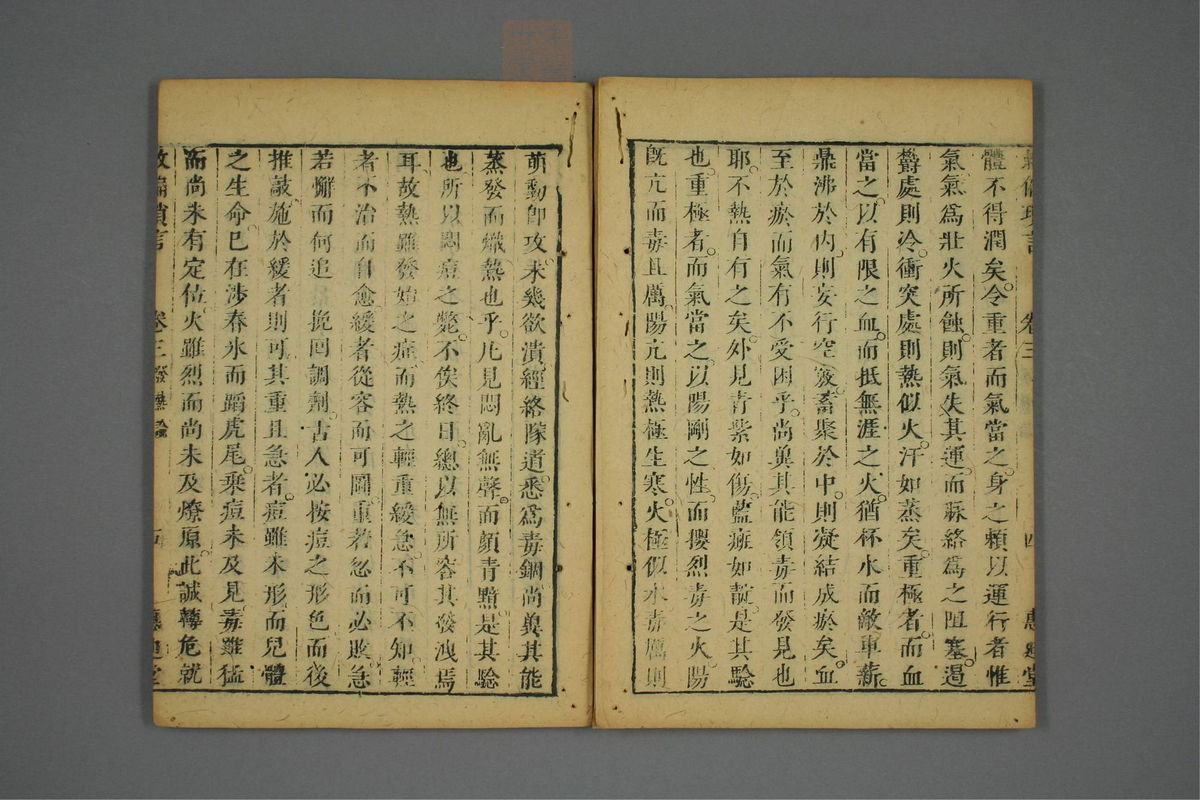 體不得潤矣令重者而氣當之身之賴以運行者惟
氣氣爲壯火所蝕則氣失其運而脉絡爲之阻塞遏
欝處則冷衝突處則熱似火汗如蒸矣重極者而血
當之以有限之血而抵無涯之火猶杯水而敵車薪
鼎沸於内則妄行空竅畜聚於中則凝結成瘀矣血
至於瘀而氣有不受困乎尚兾其能領毒而發見也
耶不熱自有之矣外見青紫如傷藍瘢如靛是其驗
也重極者而氣當之以陽剛之性而攖烈毒之火陽
旣亢而毒且厲陽亢則熱極生寒火極似水毒厲則
萌動卽攻未幾欲潰經絡隊道悉爲毒錮尚兾其能
蒸發而熾熱也乎凡見悶亂無聲而顏青黯是其驗
也所以悶痘之斃不俟終日總以無所容其發洩焉
耳故熱雖發始之症而熱之輕重緩急不可不知輕
者不治而自愈緩者從容而可圖重者忽而必敗急
若懈而何追挽回調劑古人必按痘之形色而後
推敲施於緩者則可其重且急者痘雖未形而兒體
之生命已在涉春氷而蹈虎尾乗痘未及見毒雖猛
而尚未有定位火雖烈而尚未及燎原此誠轉危就
卷三發熱論